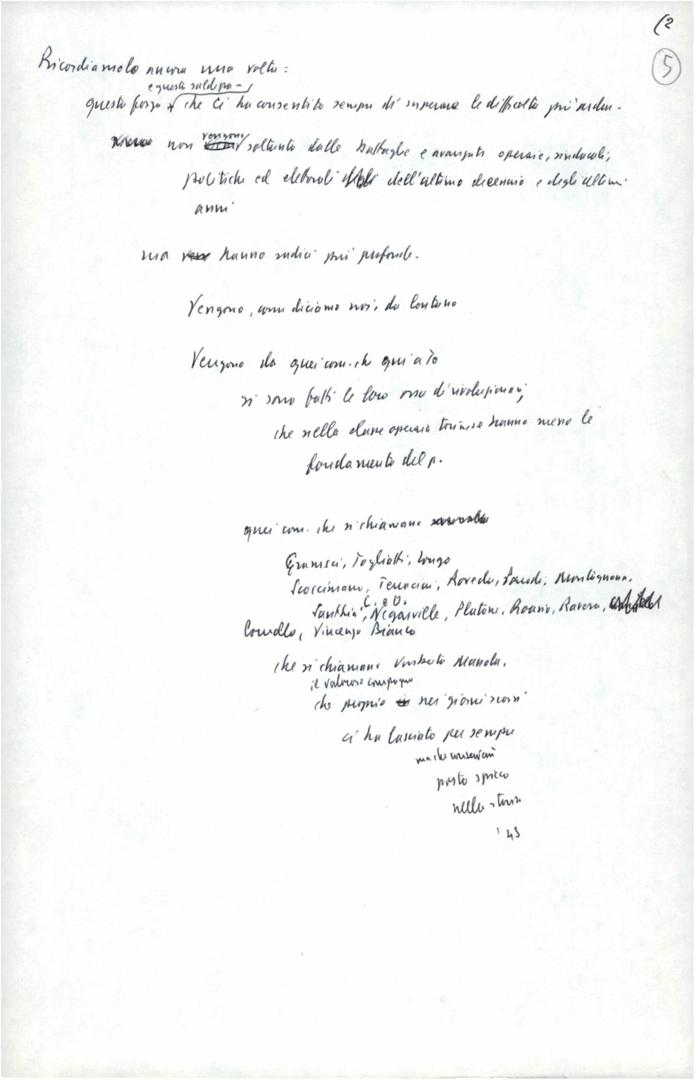 (2
5
Ricordiamolo ancora una volta:
e questa saldezza
questa forza che ci ha consentito sempre di superare le difficoltà più ardue.
non vengono soltanto dalle battaglie e avanzate operaie, sindacali,
politiche ed elettorali dell'ultimo decennio e degli ultimi
anni
ma hanno radici più profonde.
Vengono, come diciamo noi, da lontano
Vengono da quei com. che qui a To
si sono fatti le loro ossa di rivoluzionari,
che nella classe operaia torinese hanno messo le
fondamenta del p.
quei com. che si chiamano
Gramsci, Togliatti, Longo
Scoccimarro, Terracini, Roveda, Parodi, Montagnana,
C. e D.
Santhià, Negarville, Platone, Roasio, Ravera,
Comollo, Vincenzo Bianco
che si chiamano Umberto Massola,
il valoroso compagno
che proprio nei giorni scorsi
ci ha lasciato per sempre
ma che conserverà
posto spicco
nella storia
'43